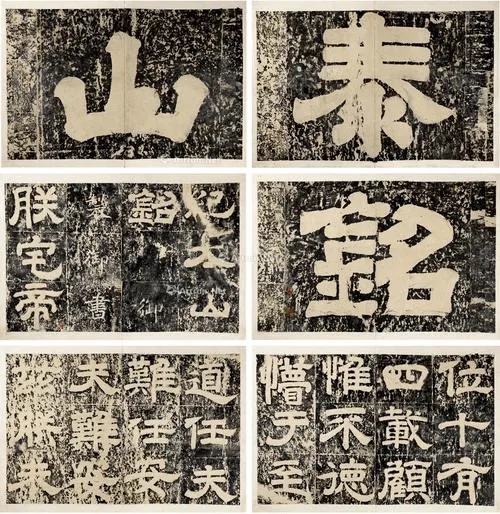 泰
山
銘
紀太山
銘 御
製御書
朕宅帝
位十有
四載顧
惟不德
懵于至
道任夫
難任安
夫難安
茲朕未